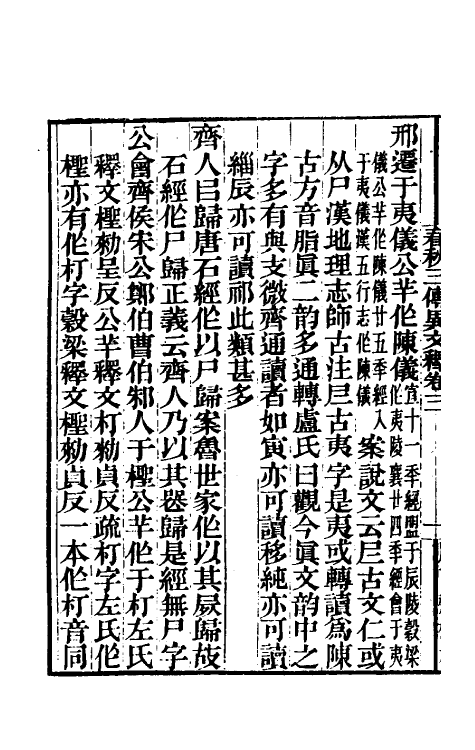 春秋三傳異文釋卷三
邢遷于夷儀公羊作陳儀宣十一季經盟于辰陵穀梁
作夷陵襄廿四季經會于夷
儀公羊作陳儀廿五季經入
于夷儀漢五行志作陳儀
案說文云𡰥古文仁或
从尸漢地理志師古注𡰥古夷字是夷或轉讀爲陳
古方音脂眞二韵多通轉盧氏曰觀今眞文韵中之
字多有與支微齊通讀者如寅亦可讀移純亦可讀
緇辰亦可讀祁此類甚多
齊人㠯歸唐石經作以尸歸案魯世家作以其屍歸故
石經作尸歸正義云齊人乃以其喪歸是經無尸字
公會齊侯宋公鄭伯曹伯邾人于檉公羊作于朾左氏
釋文檉勑呈反公羊釋文朾勑貞反疏朾字左氏作
檉亦有作朾字穀梁釋文檉勑貞反一本作朾音同